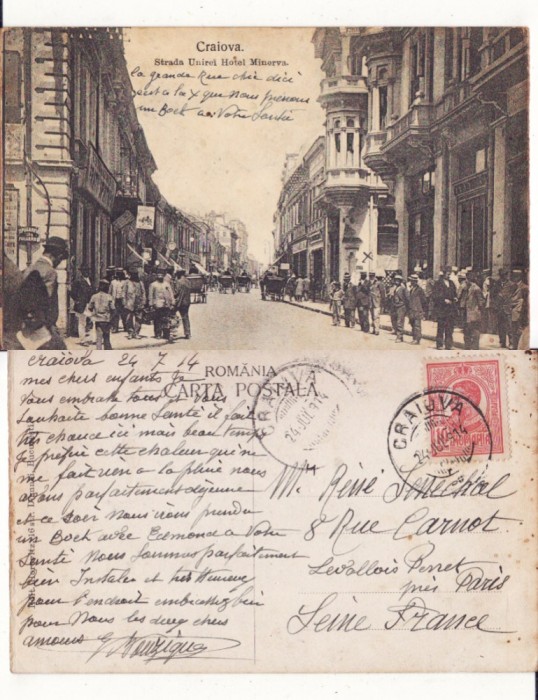 Craiova.
Strada Unirei Hotel Minerva.
la grande Rue chic d'ici
est a la x que nous prenons
un Bock a Votre Santé
Craïova 24 7 14
mes chers enfants Je
vous embrasse tous Vous
Souhaite bonne Santé il fait
très chaud ici mais beau temps
Je préfère cette chaleur qui ne
me fait rien a la pluie nous
avons parfaitement déjeuné
et ce Soir nous irons prendre
un Bock avec Edmond a Votre
Santé nous Sommes parfaitement
bien Installés et très Heureux
pour l'endroit embrassez bien
pour Nous les deux chers
amours
ROMÂNIA
CARTA POSTALĂ
CRAIOVA
24 IUL 914
CRAIOVA
24 IUL 914
Mr. Réné Sénéchal
8 Rue Carnot
Levallois Perret
près Paris
Seine France